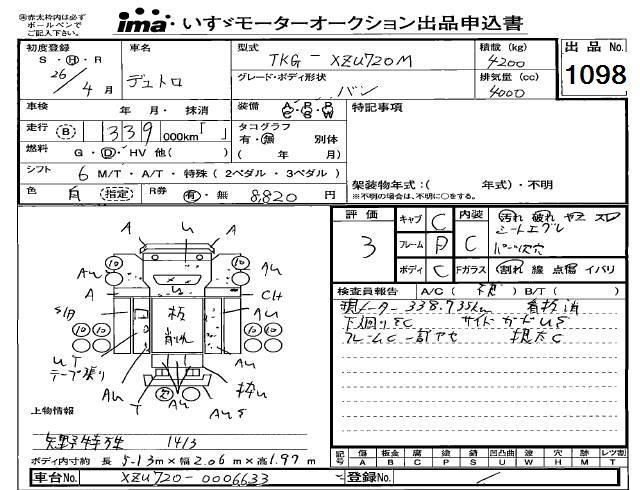 ㊟赤太枠内は必ず
ボールペンで
ご記入下さい。
ima いすゞモーターオークション出品申込書
初度登録
S・H・R
26/4月
車名
デュトロ
型式
TKG-XZU720M
グレード・ボディ形状
バン
積載(kg)
4200
排気量(cc)
4000
出品No.
1098
車検 年 月・抹消
装備
A/C P/S P/W
特記事項
走行 B 339 000km「 」
タコグラフ
有・無 別体
( 年 月)
燃料 G・D・HV 他( )
シフト 6 M/T・A/T・特殊(2ペダル・3ペダル)
色 白 (指定) R券 有・無 8,820 円
架装物年式:( 年式)・不明
※不明の場合は、不明に○をする。
評価 3
キャブ C
フレーム P
ボディ C
内装 C
Fガラス
汚れ 破れ ヤニ スレ
シートエグレ
割れ 線 点傷 イバリ
検査員報告 A/C( ) B/T( )
現メーター 338.735km 看板泊
下廻りSC サイドガードUS
A U A
10 10
AU AU
A CH
板
削れ
10 10 10 10
UT
テープ張り
AU AU
T AU AUS
枠U
上物情報
矢野特殊 1413
ボディ内寸約 長 5.13m×幅 2.06m×高 1.97m
記号 傷A 板金B 腐C 塗P 錆S 凹凸曲U 波W 穴H 無M レツ割T
車台No. XZU720-0006633
登録No.